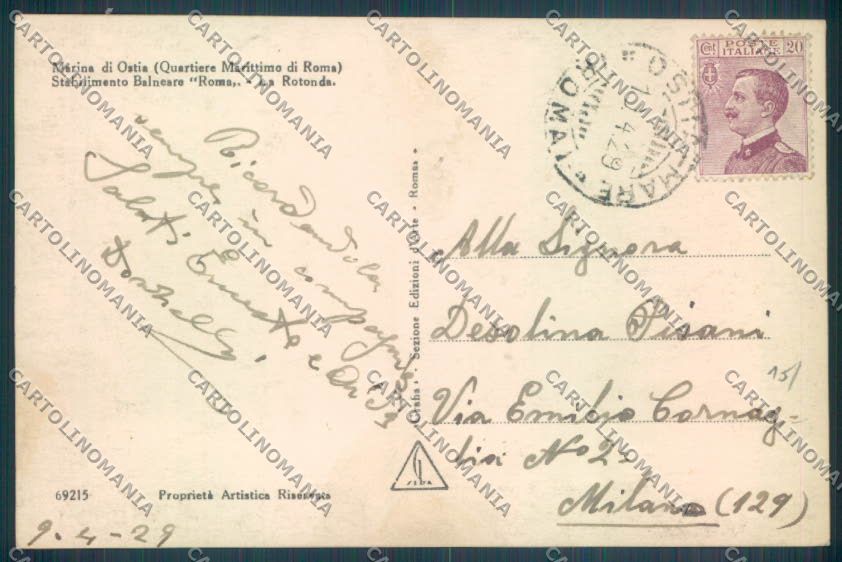 Marina di Ostia (Quartiere Marittimo di Roma)
Stabilimento Balneare "Roma,, - La Rotonda.
Ricordandola
sempre in compagnia
Saluti Ernesto e
69215 Proprietà Artistica Riservata
9-4-29
Sezione Edizioni d'Arte - Roma
POSTE
ITALIANE
Cent 20
OSTIA MARE
ROMA
10.4.29
Alla Signora
Desolina Pisani
Via Emilio Cornag-
lia N° 2
Milano (129)
15/
CARTOLINOMANIA